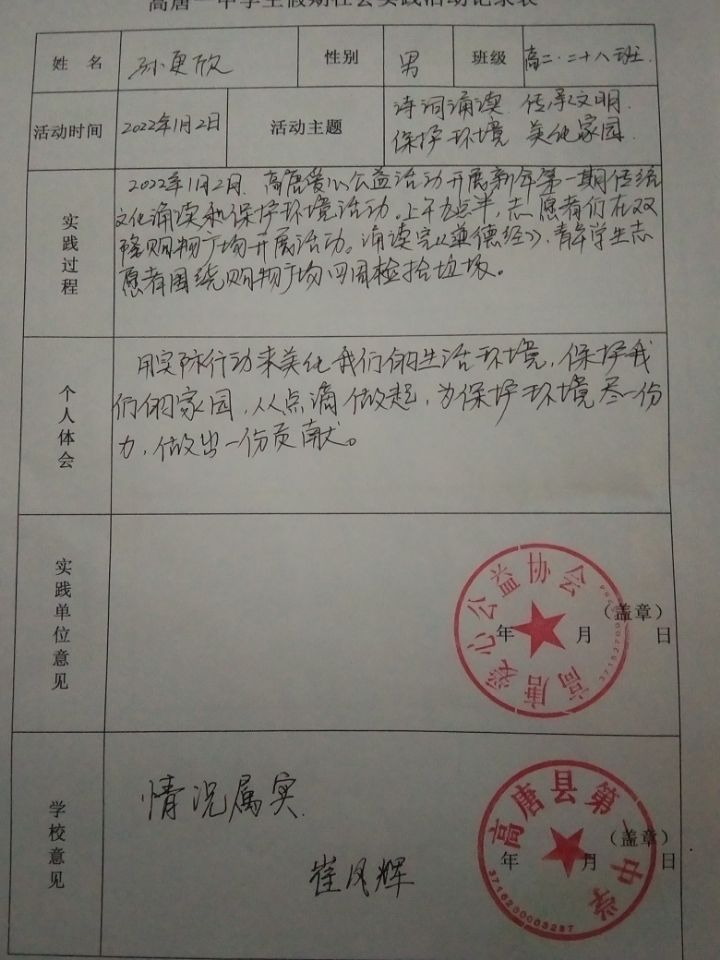 高唐一中学生假期社会实践活动记录表
姓 名 孙更欣 性别 男 班级 高二·二十八班.
活动时间 2022年1月2日 活动主题 诗词诵读 传承文明.
保护环境 美化家园.
实践过程
2022年1月2日.高唐爱心公益活动开展新年第一期传统
文化诵读和保护环境活动.上午九点半,志愿者们在双
隆购物广场开展活动。诵读完《道德经》,青年学生志
愿者围绕购物广场四周检拾垃圾。
个人体会
用实际行动来美化我们的生活环境,保护我
们的家园,从点滴做起,为保护环境尽一份
力,做出一份贡献。
实践单位意见
高唐爱心公益协会
(盖章)
年 月 日
学校意见
情况属实.
崔凤辉
高唐县第一中学
(盖章)
年 月 日